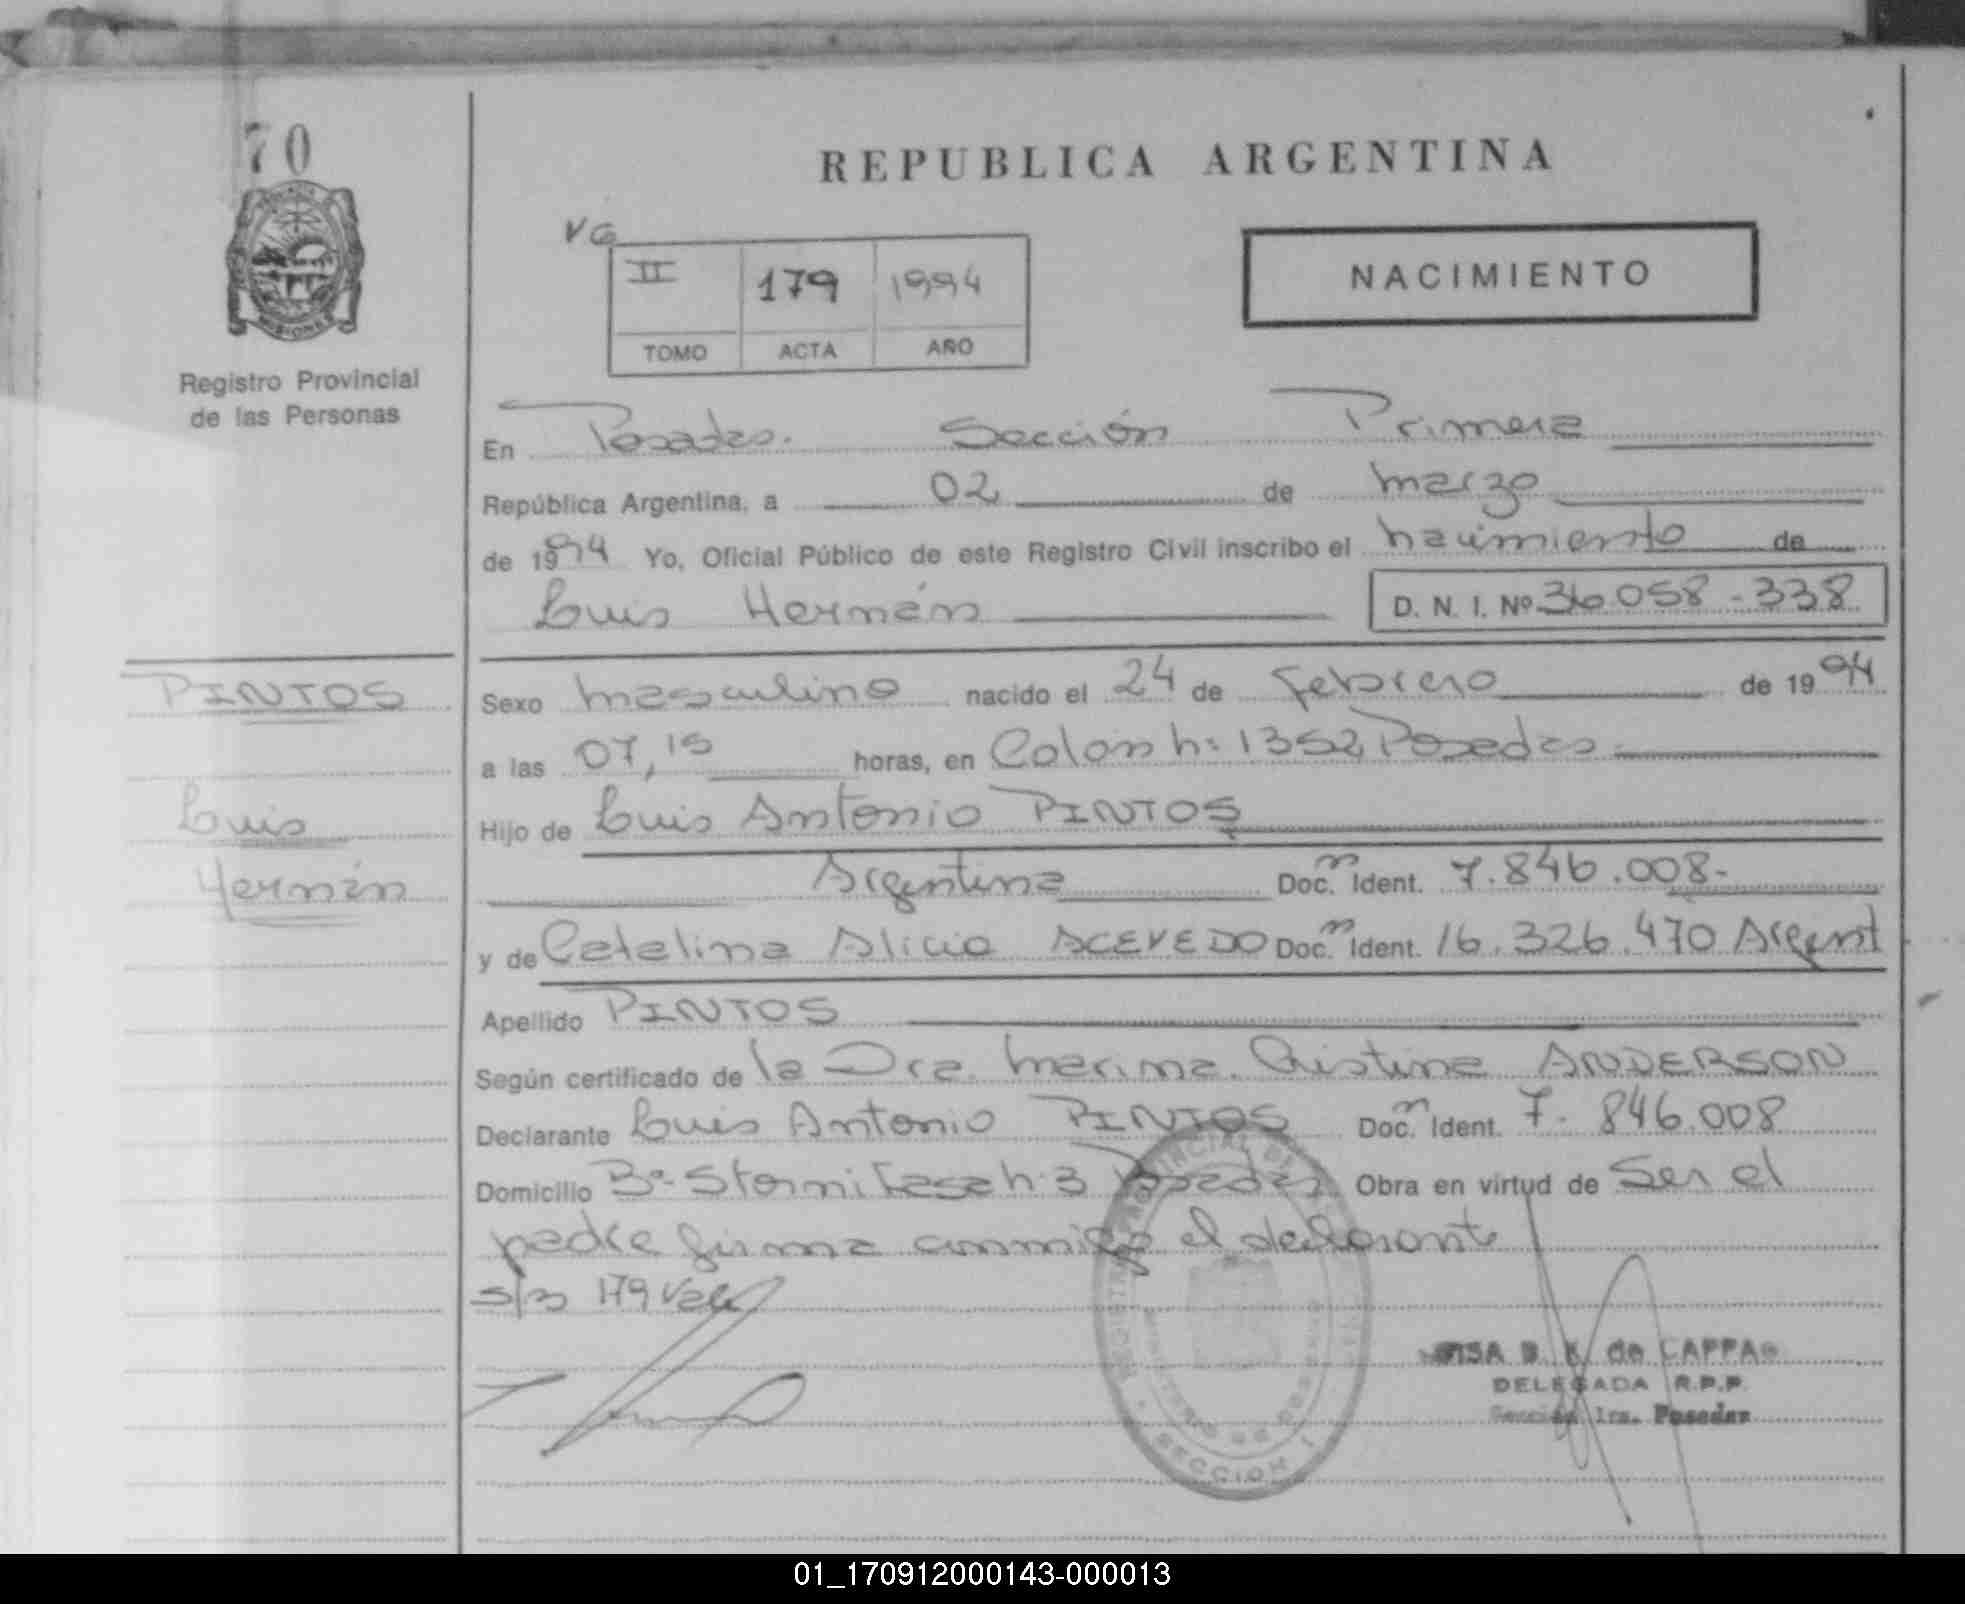 70
REPUBLICA ARGENTINA
VG
II 179 1994
TOMO ACTA AÑO
NACIMIENTO
MISIONES
Registro Provincial
de las Personas
En Posadas. Sección Primera
República Argentina, a 02 de marzo
de 1994 Yo, Oficial Público de este Registro Civil inscribo el nacimiento de
Luis Hernán D. N. I. Nº 36.058-338
PINTOS
Luis
Hernán
Sexo masculino nacido el 24 de febrero de 1994
a las 07,15 horas, en Colón n: 1352 Posadas
Hijo de Luis Antonio PINTOS
Argentina Doc. Ident. 7.846.008-
y de Catalina Alicia ACEVEDO Doc. Ident. 16.326.470 Argent
Apellido PINTOS
Según certificado de la Dra. Marina Cristina ANDERSON
Declarante Luis Antonio PINTOS Doc. Ident. 7.846.008
Domicilio Bº Storni Casa n: 3 Posadas Obra en virtud de Ser el
padre firma conmigo el declarante
179 Vale
SECCION 1
B. K. de CAPPA
DELEGADA R.P.P.
Sección 1ra. Posadas
01_170912000143-000013